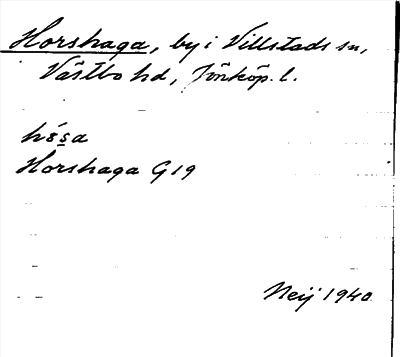 Horshaga, by i Villstads sn,
Västbo hd, Jönköp. l.
Horshaga G19
Neij 1940